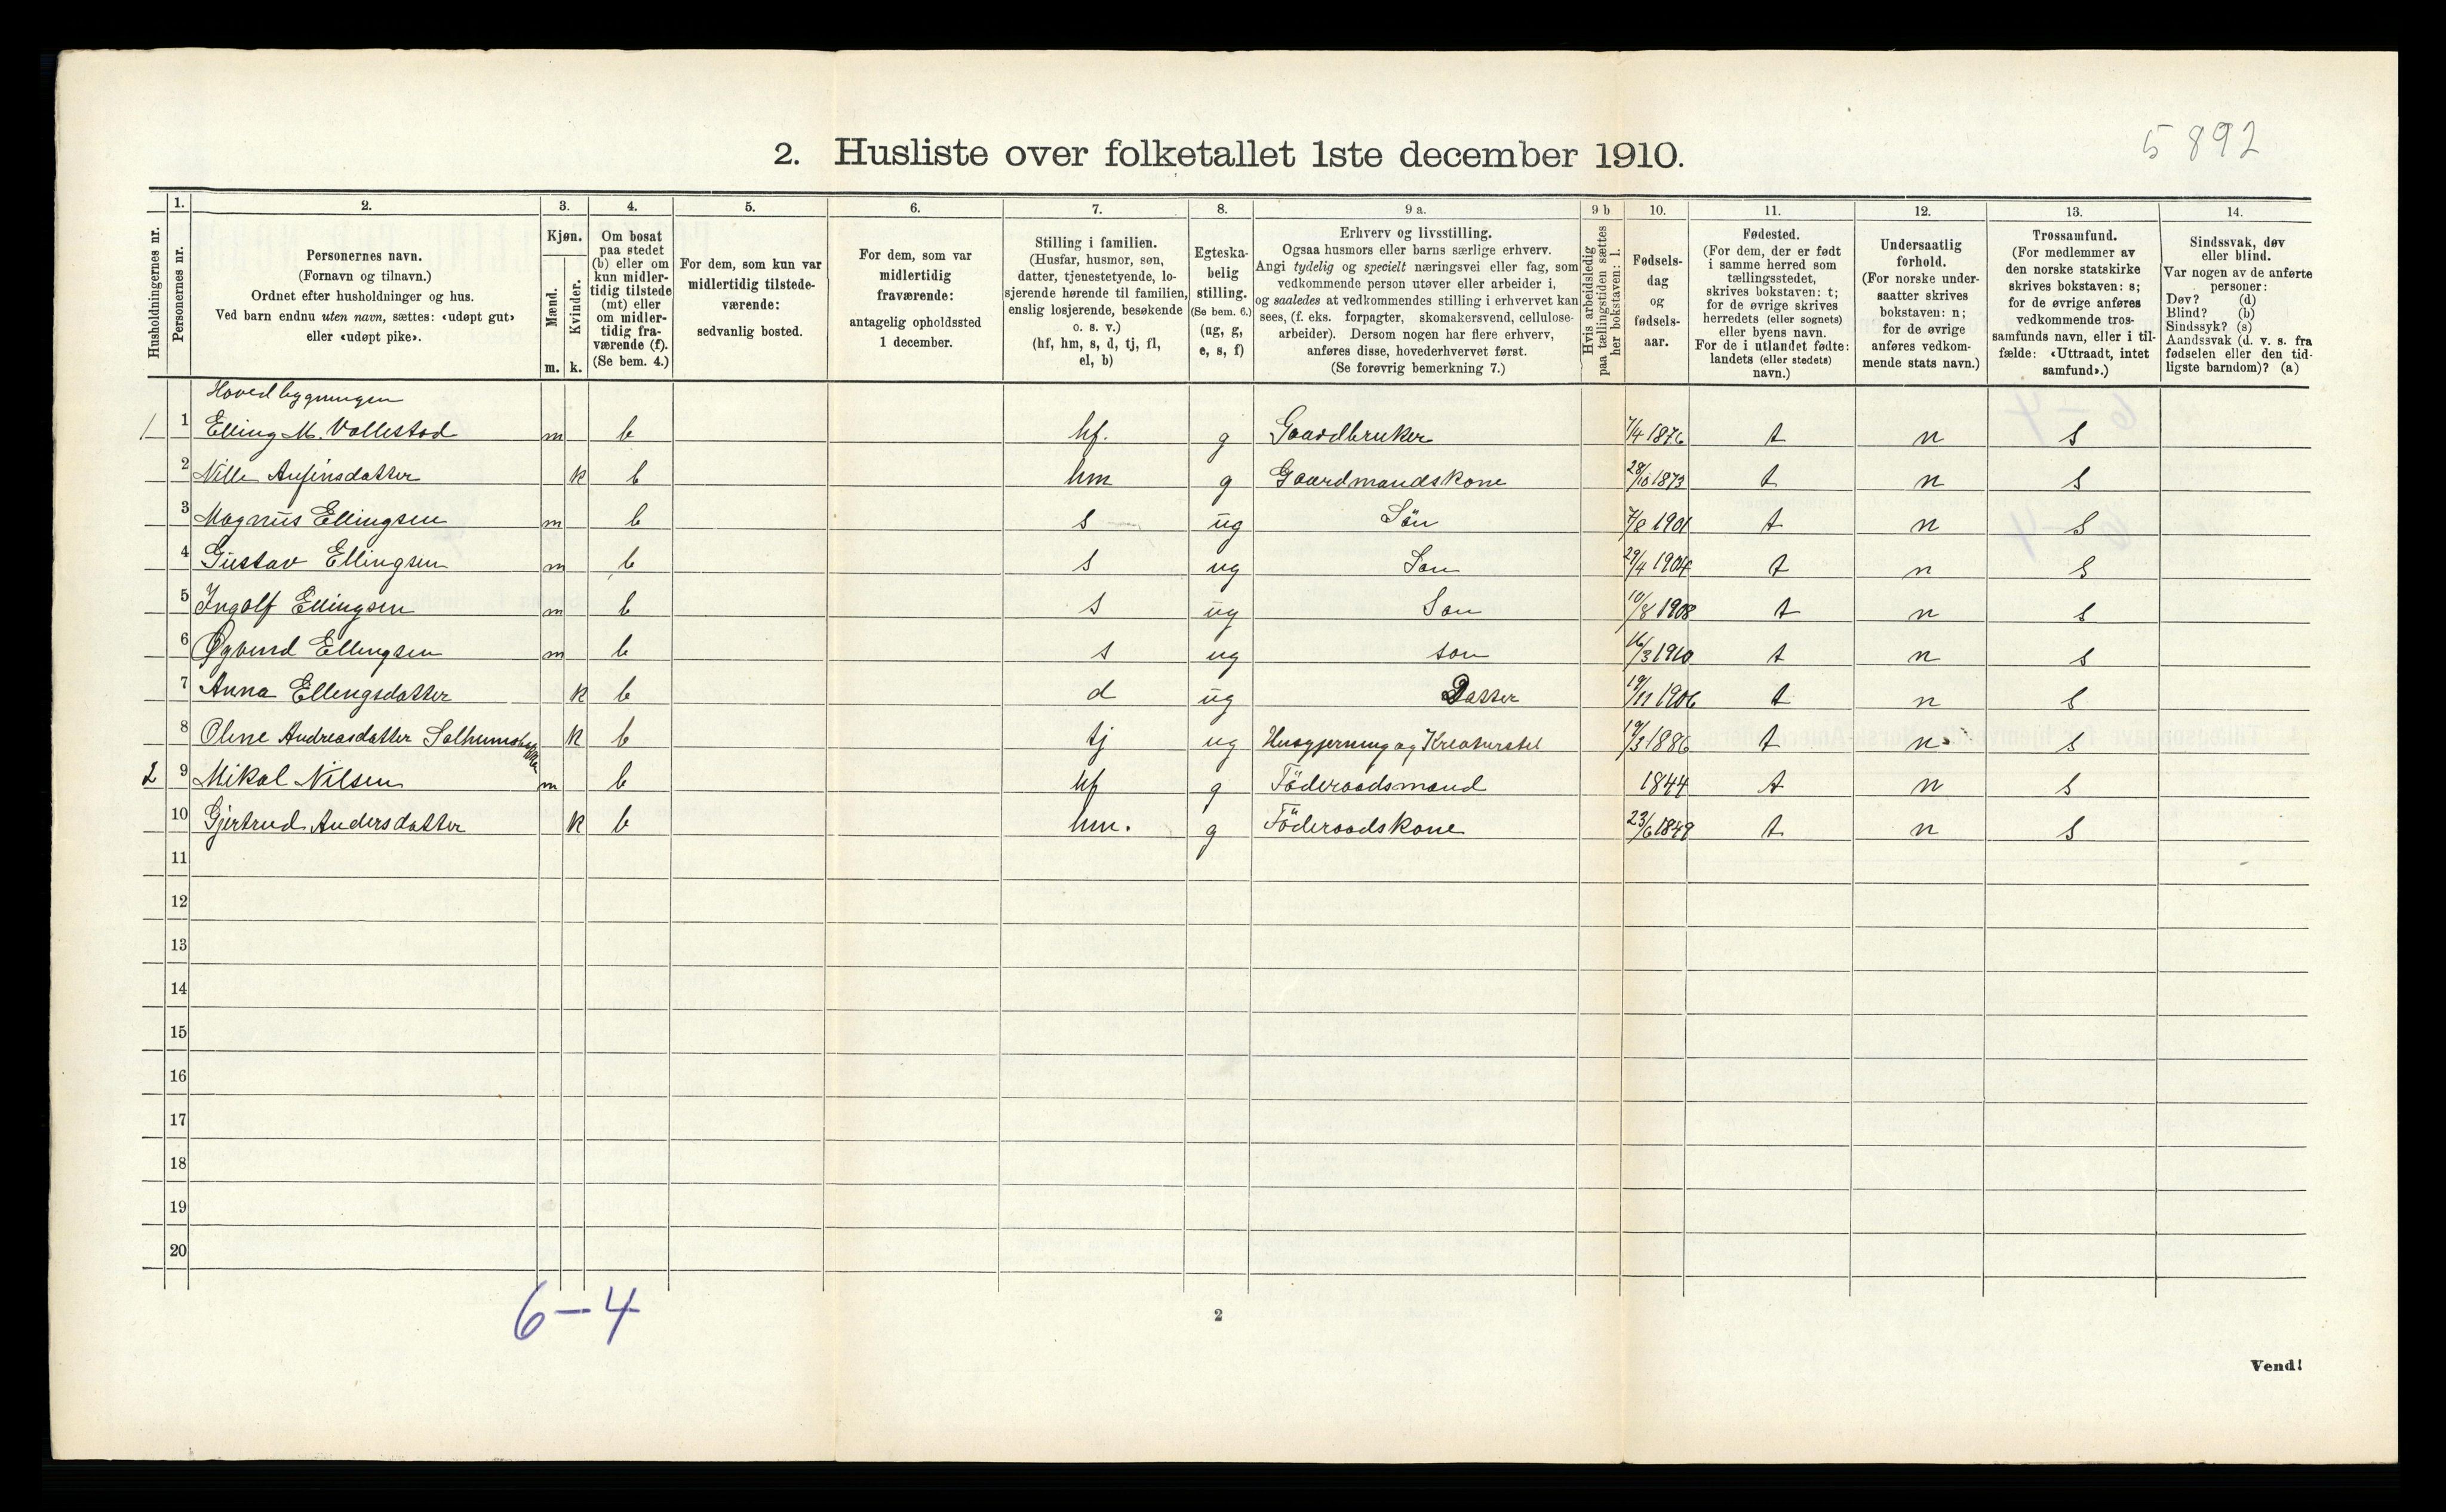 5892
2. Husliste over folketallet 1ste december 1910.
Husholdningernes nr.
1. Personernes nr.
2. Personernes navn. (Fornavn og tilnavn.) Ordnet efter husholdninger og hus. Ved barn endnu uten navn, sættes: «udøpt gut» eller «udøpt pike».
3. Kjøn. Mænd. m. Kvinder. k.
4. Om bosat paa stedet (b) eller om kun midlertidig tilstede (mt) eller om midlertidig fraværende (f). (Se bem. 4.)
5. For dem, som kun var midlertidig tilstedeværende: sedvanlig bosted.
6. For dem, som var midlertidig fraværende: antagelig opholdssted 1 december.
7. Stilling i familien. (Husfar, husmor, søn, datter, tjenestetyende, losjerende hørende til familien, enslig losjerende, besøkende o. s. v.) (hf, hm, s, d, tj, fl, el, b)
8. Egteskabelig stilling. (Se bem. 6.) (ug, g, e, s, f)
9 a. Erhverv og livsstilling. Ogsaa husmors eller barns særlige erhverv. Angi tydelig og specielt næringsvei eller fag, som vedkommende person utøver eller arbeider i, og saaledes at vedkommendes stilling i erhvervet kan sees, (f. eks. forpagter, skomakersvend, cellulosearbeider). Dersom nogen har flere erhverv, anføres disse, hovederhvervet først. (Se forøvrig bemerkning 7.)
9 b Hvis arbeidsledig paa tællingstiden sættes her bokstaven: l.
10. Fødselsdag og fødselsaar.
11. Fødested. (For dem, der er født i samme herred som tællingsstedet, skrives bokstaven: t; for de øvrige skrives herredets (eller sognets) eller byens navn. For de i utlandet fødte: landets (eller stedets) navn.)
12. Undersaatlig forhold. (For norske undersaatter skrives bokstaven: n; for de øvrige anføres vedkommende stats navn.)
13. Trossamfund. (For medlemmer av den norske statskirke skrives bokstaven: s; for de øvrige anføres vedkommende trossamfunds navn, eller i tilfælde: «Uttraadt, intet samfund».)
14. Sindssvak, døv eller blind. Var nogen av de anførte personer: Døv? (d) Blind? (b) Sindssyk? (s) Aandssvak (d. v. s. fra fødselen eller den tidligste barndom)? (a)
Hovedbygningen
1 1 Elling M. Vallestad m b hf. g Gaardbruker 7/4 1876 t n s
2 Nille Anfinsdatter k b hm g Gaardmandskone 28/10 1873 t n s
3 Magnus Ellingsen m b s ug Sön 7/8 1901 t n s
4 Gustav Ellingsen m b s ug Son 29/4 1904 t n s
5 Ingolf Ellingsen m b s ug Son 10/8 1908 t n s
6 Øyvind Ellingsen m b s ug son 16/3 1910 t n s
7 Anna Ellingsdatter k b d ug Datter 19/11 1906 t n s
8 Oline Andreasdatter k b tj ug Husgjerning og Kreaturstel 19/3 1886 t n s
2 9 Mikal Nilsen m b hf g Föderaadsmand 1844 t n s
10 Gjertrud Andersdatter k b hm. g Föderaadskone 23/6 1849 t n s
11
12
13
14
15
16
17
18
19
20
6-4
2
Vend!